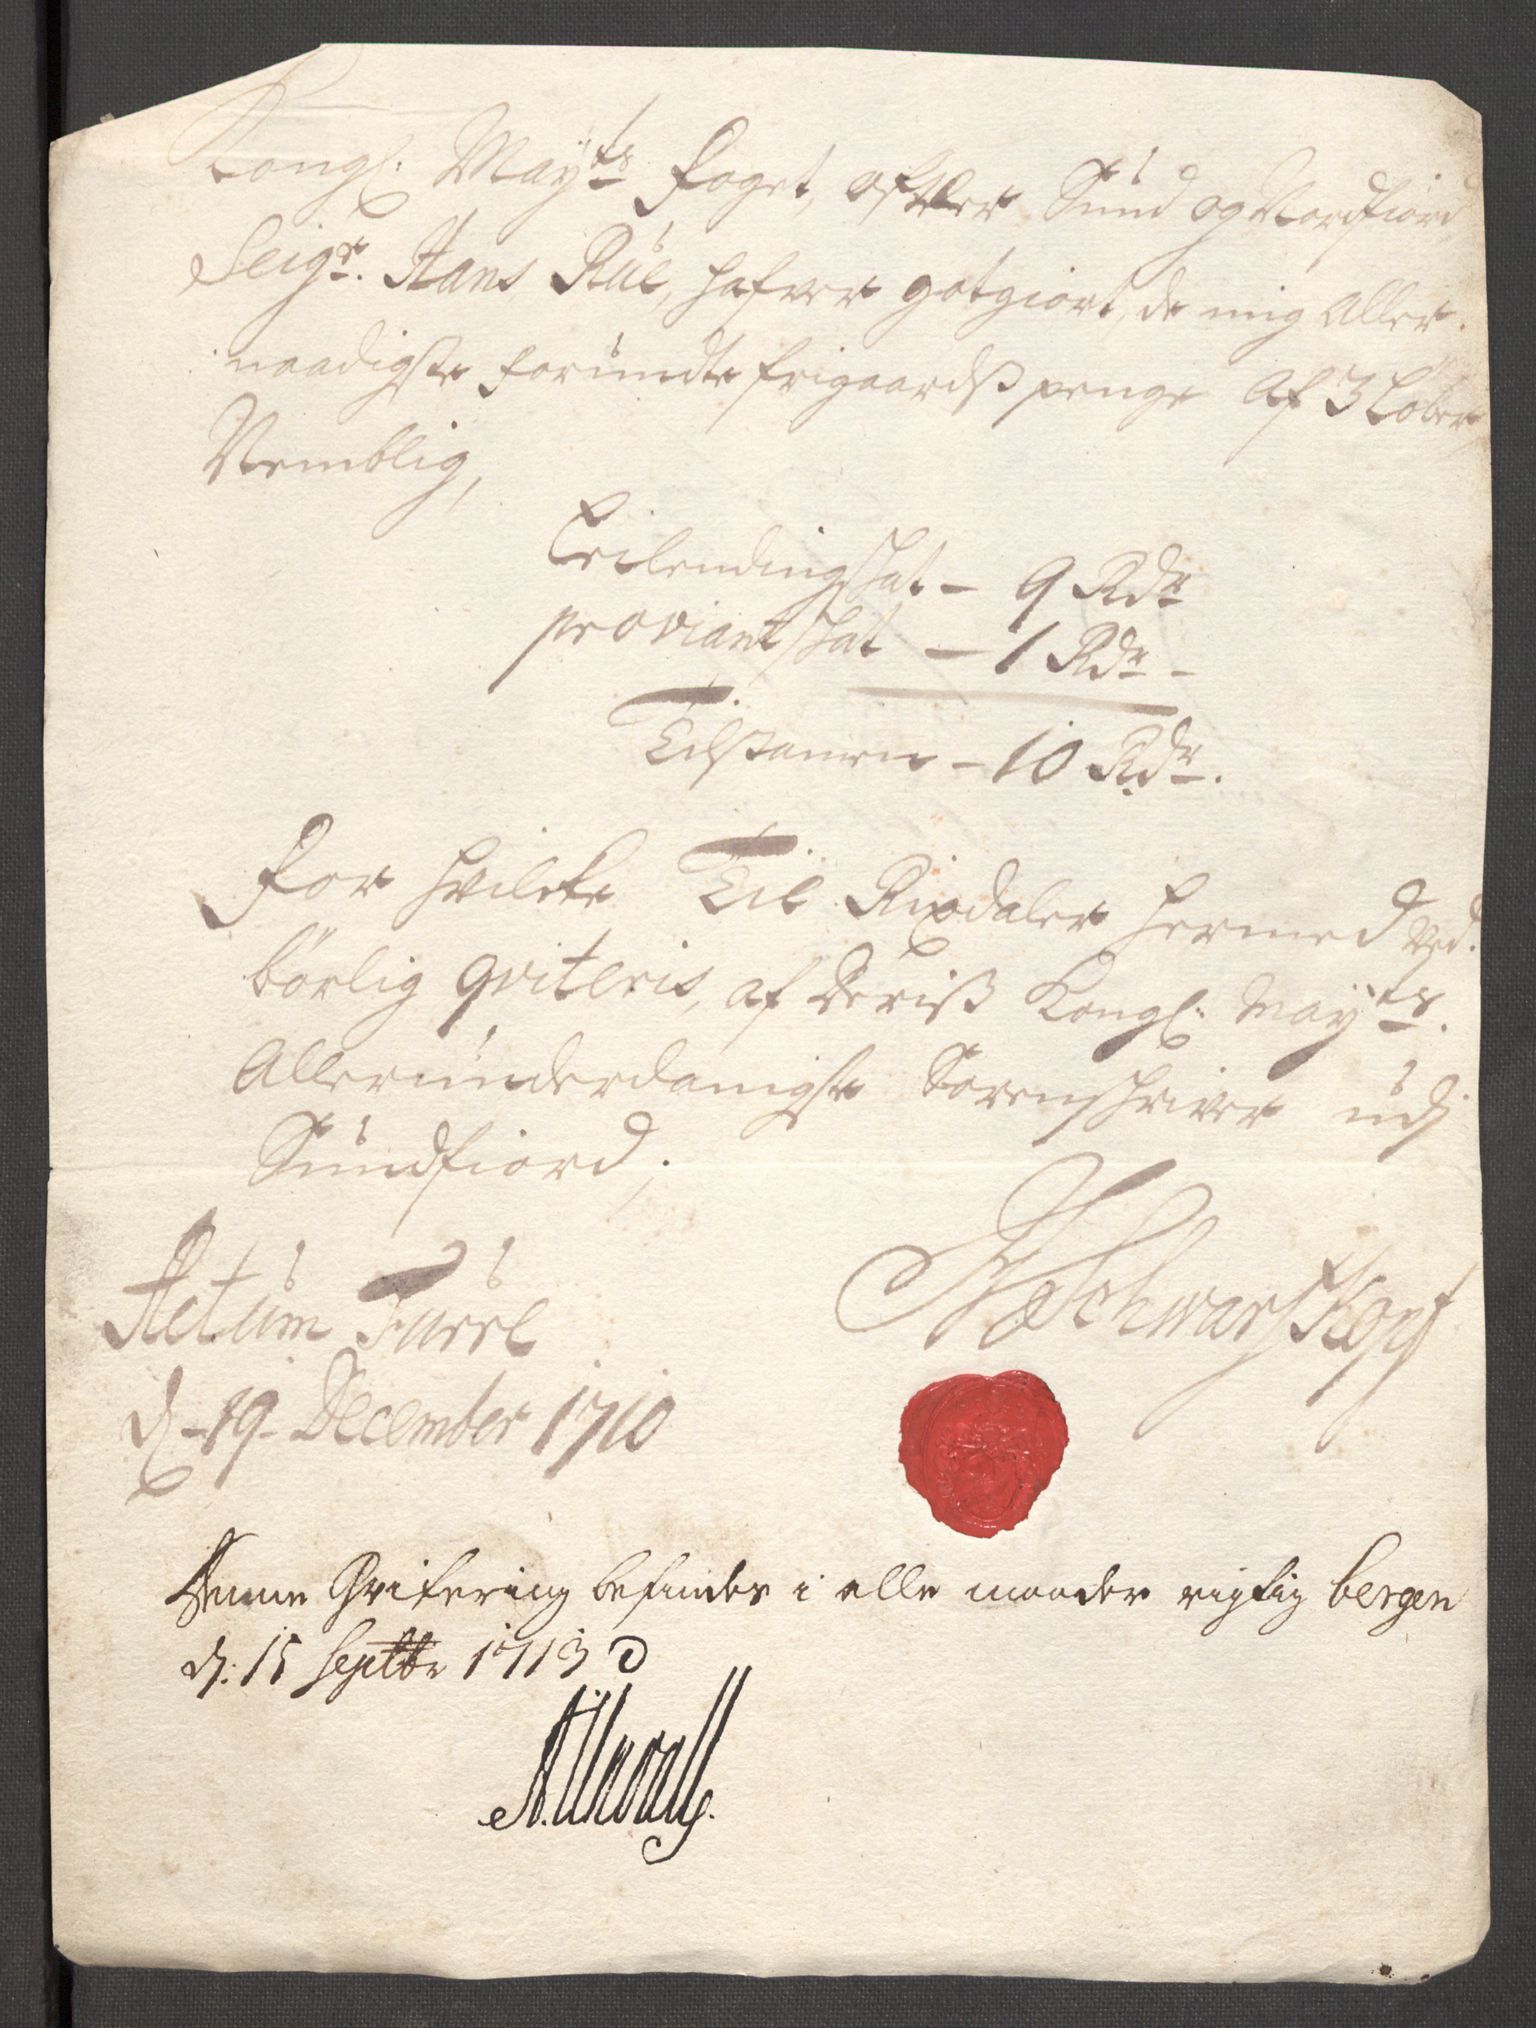 Kongl. Mayts foget, ofver Sund og Nordfiord
Seigr. Hans Rül, hafver gotgiort, de mig Aller-
naadigste forundte frigaardsß penge af 3 Løber
Nemblig,
Leilendingschat – 9 Rdr
proviantschat – 1 Rdr –
Tilsamen – 10 Rdr.
for hvilcke Tie Rixdaler hermed ved-
börlig qviteris, af Deriß Kongl. Mayts.
Allerunderdanigste Sorenschriver udj
Sundfiord;
Actum
d. 19 December 1710
Schwarskopf
Denne Qvitering befindes i alle maader rigtig bergen
d: 15 septbr 1713